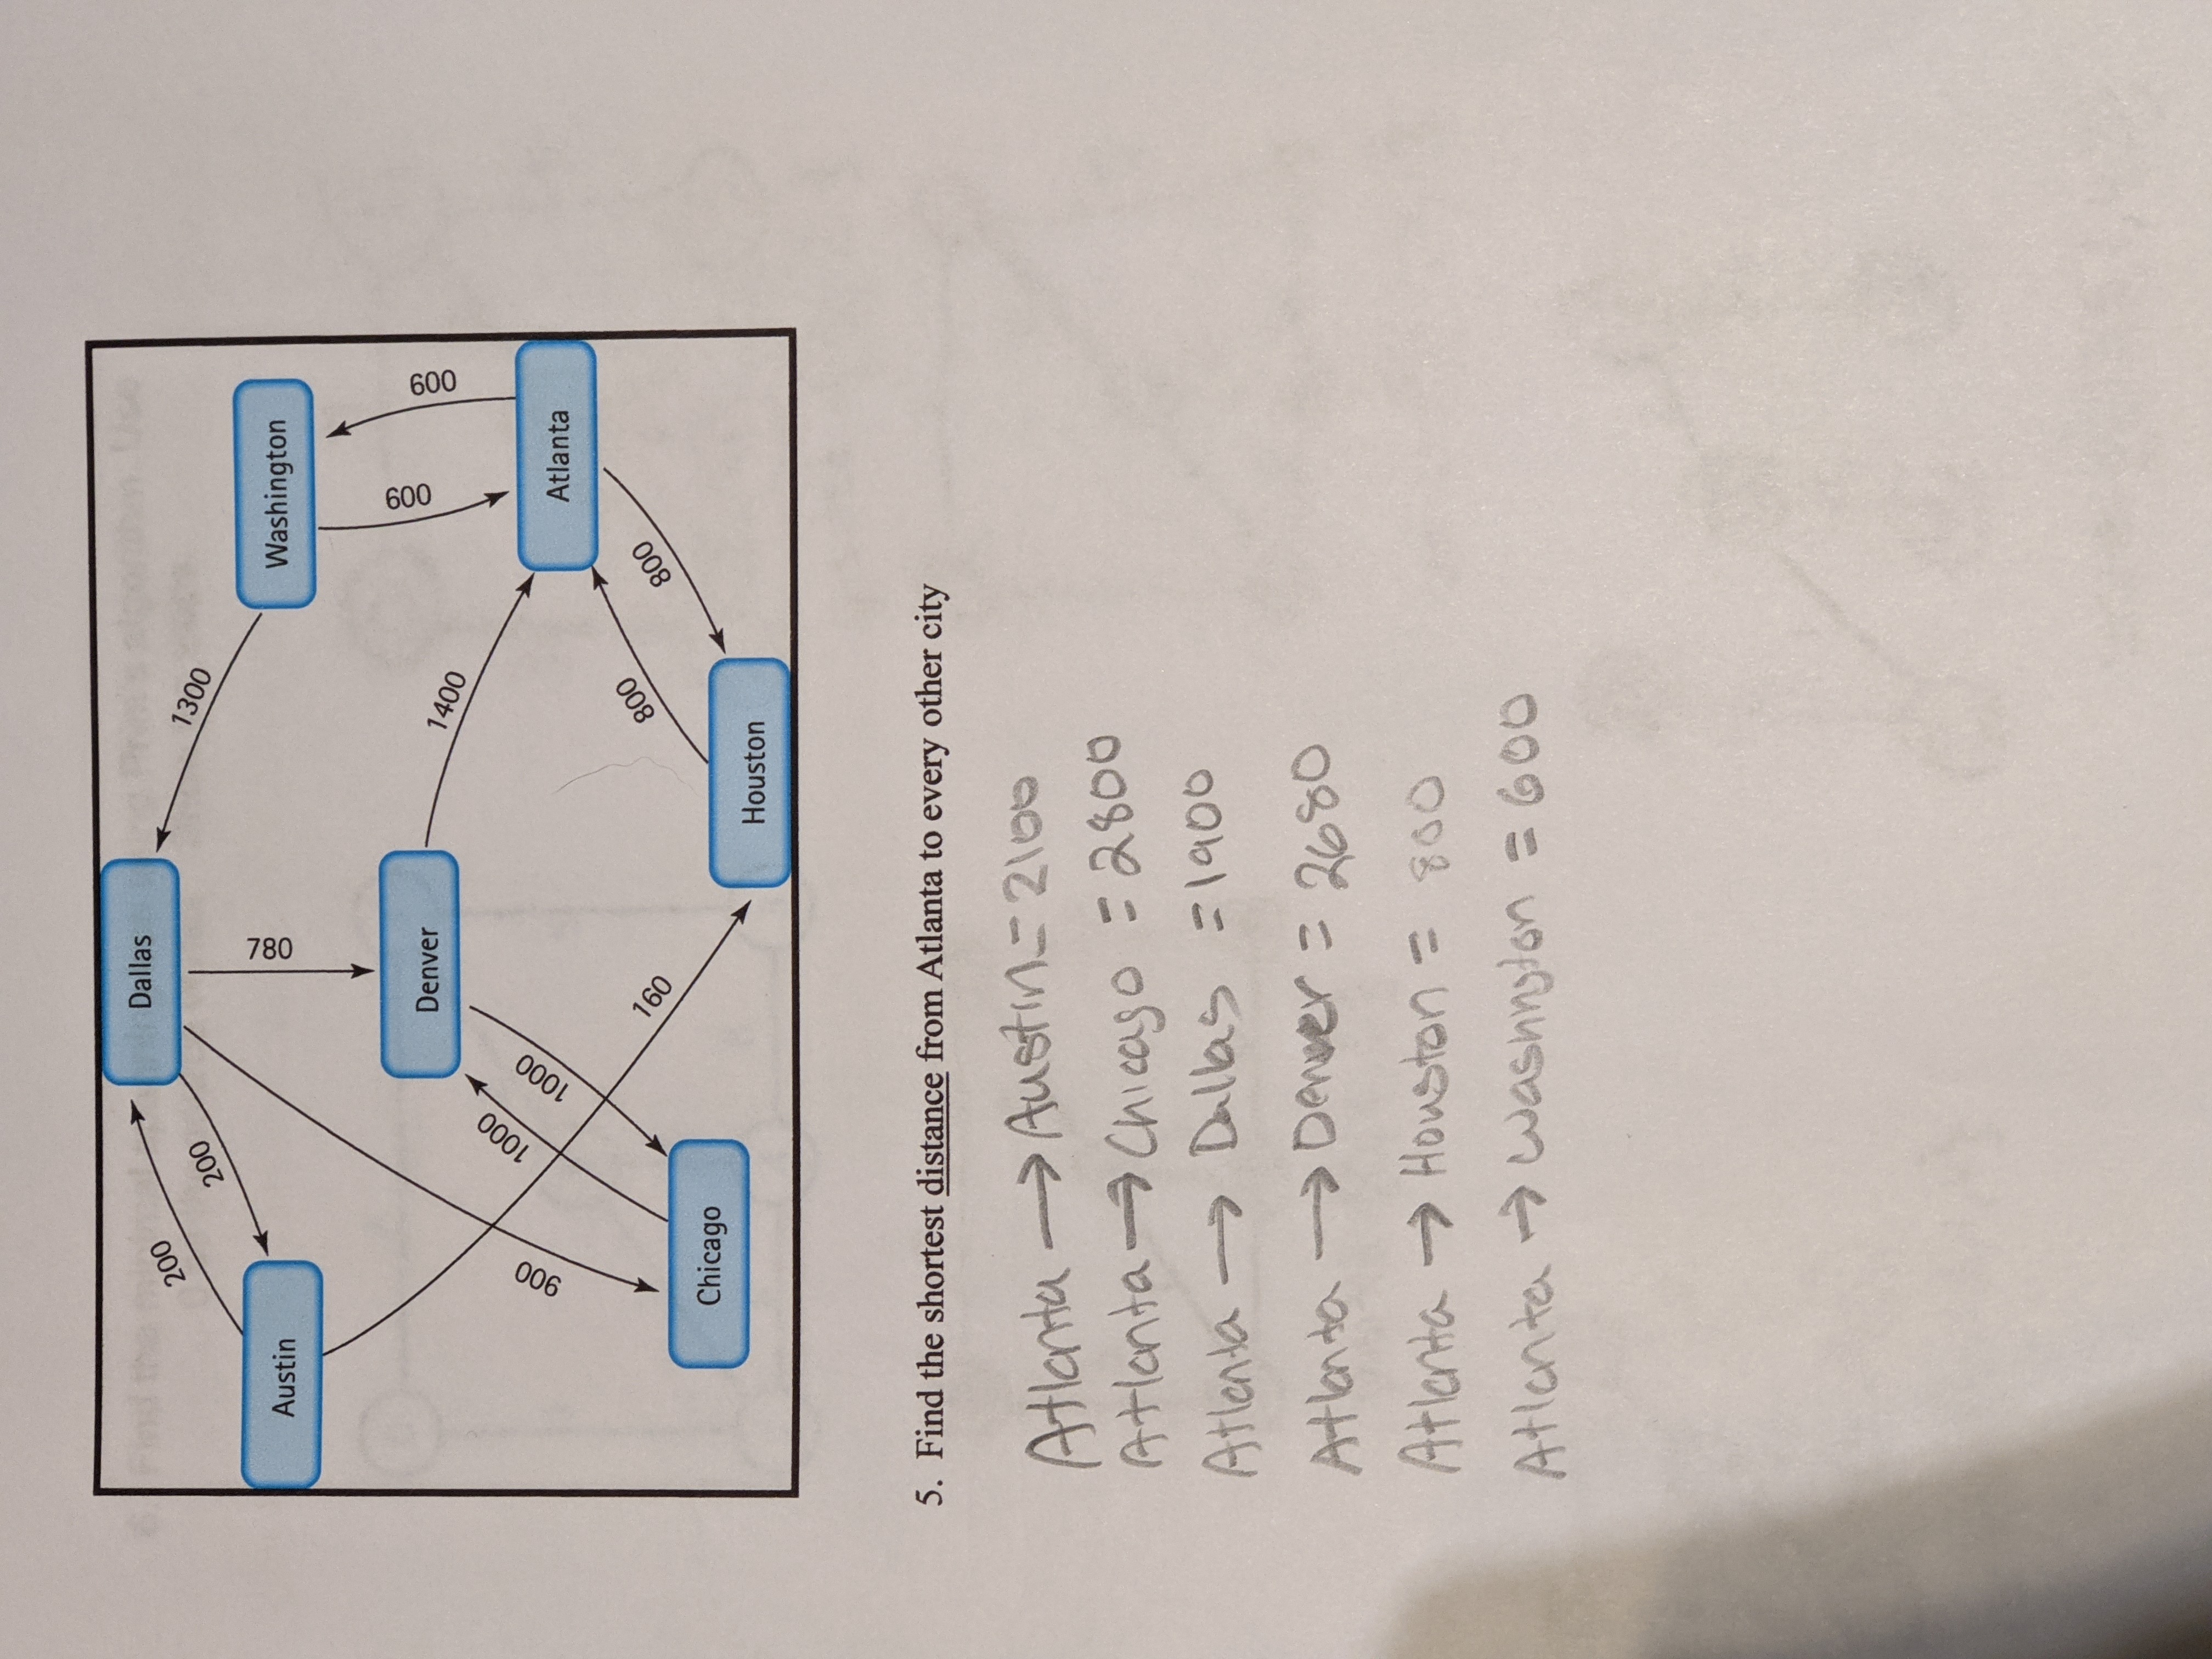 Dallas
200
200
1300
Austin
780
Washington
Denver
1400
600
600
900
1000
1000
Atlanta
160
800
800
Chicago
Houston
5. Find the shortest distance from Atlanta to every other city
Atlanta → Austin = 2100
Atlanta → Chicago = 2800
Atlanta → Dallas = 1900
Atlanta → Denver = 2680
Atlanta → Houston = 800
Atlanta → Washington = 600